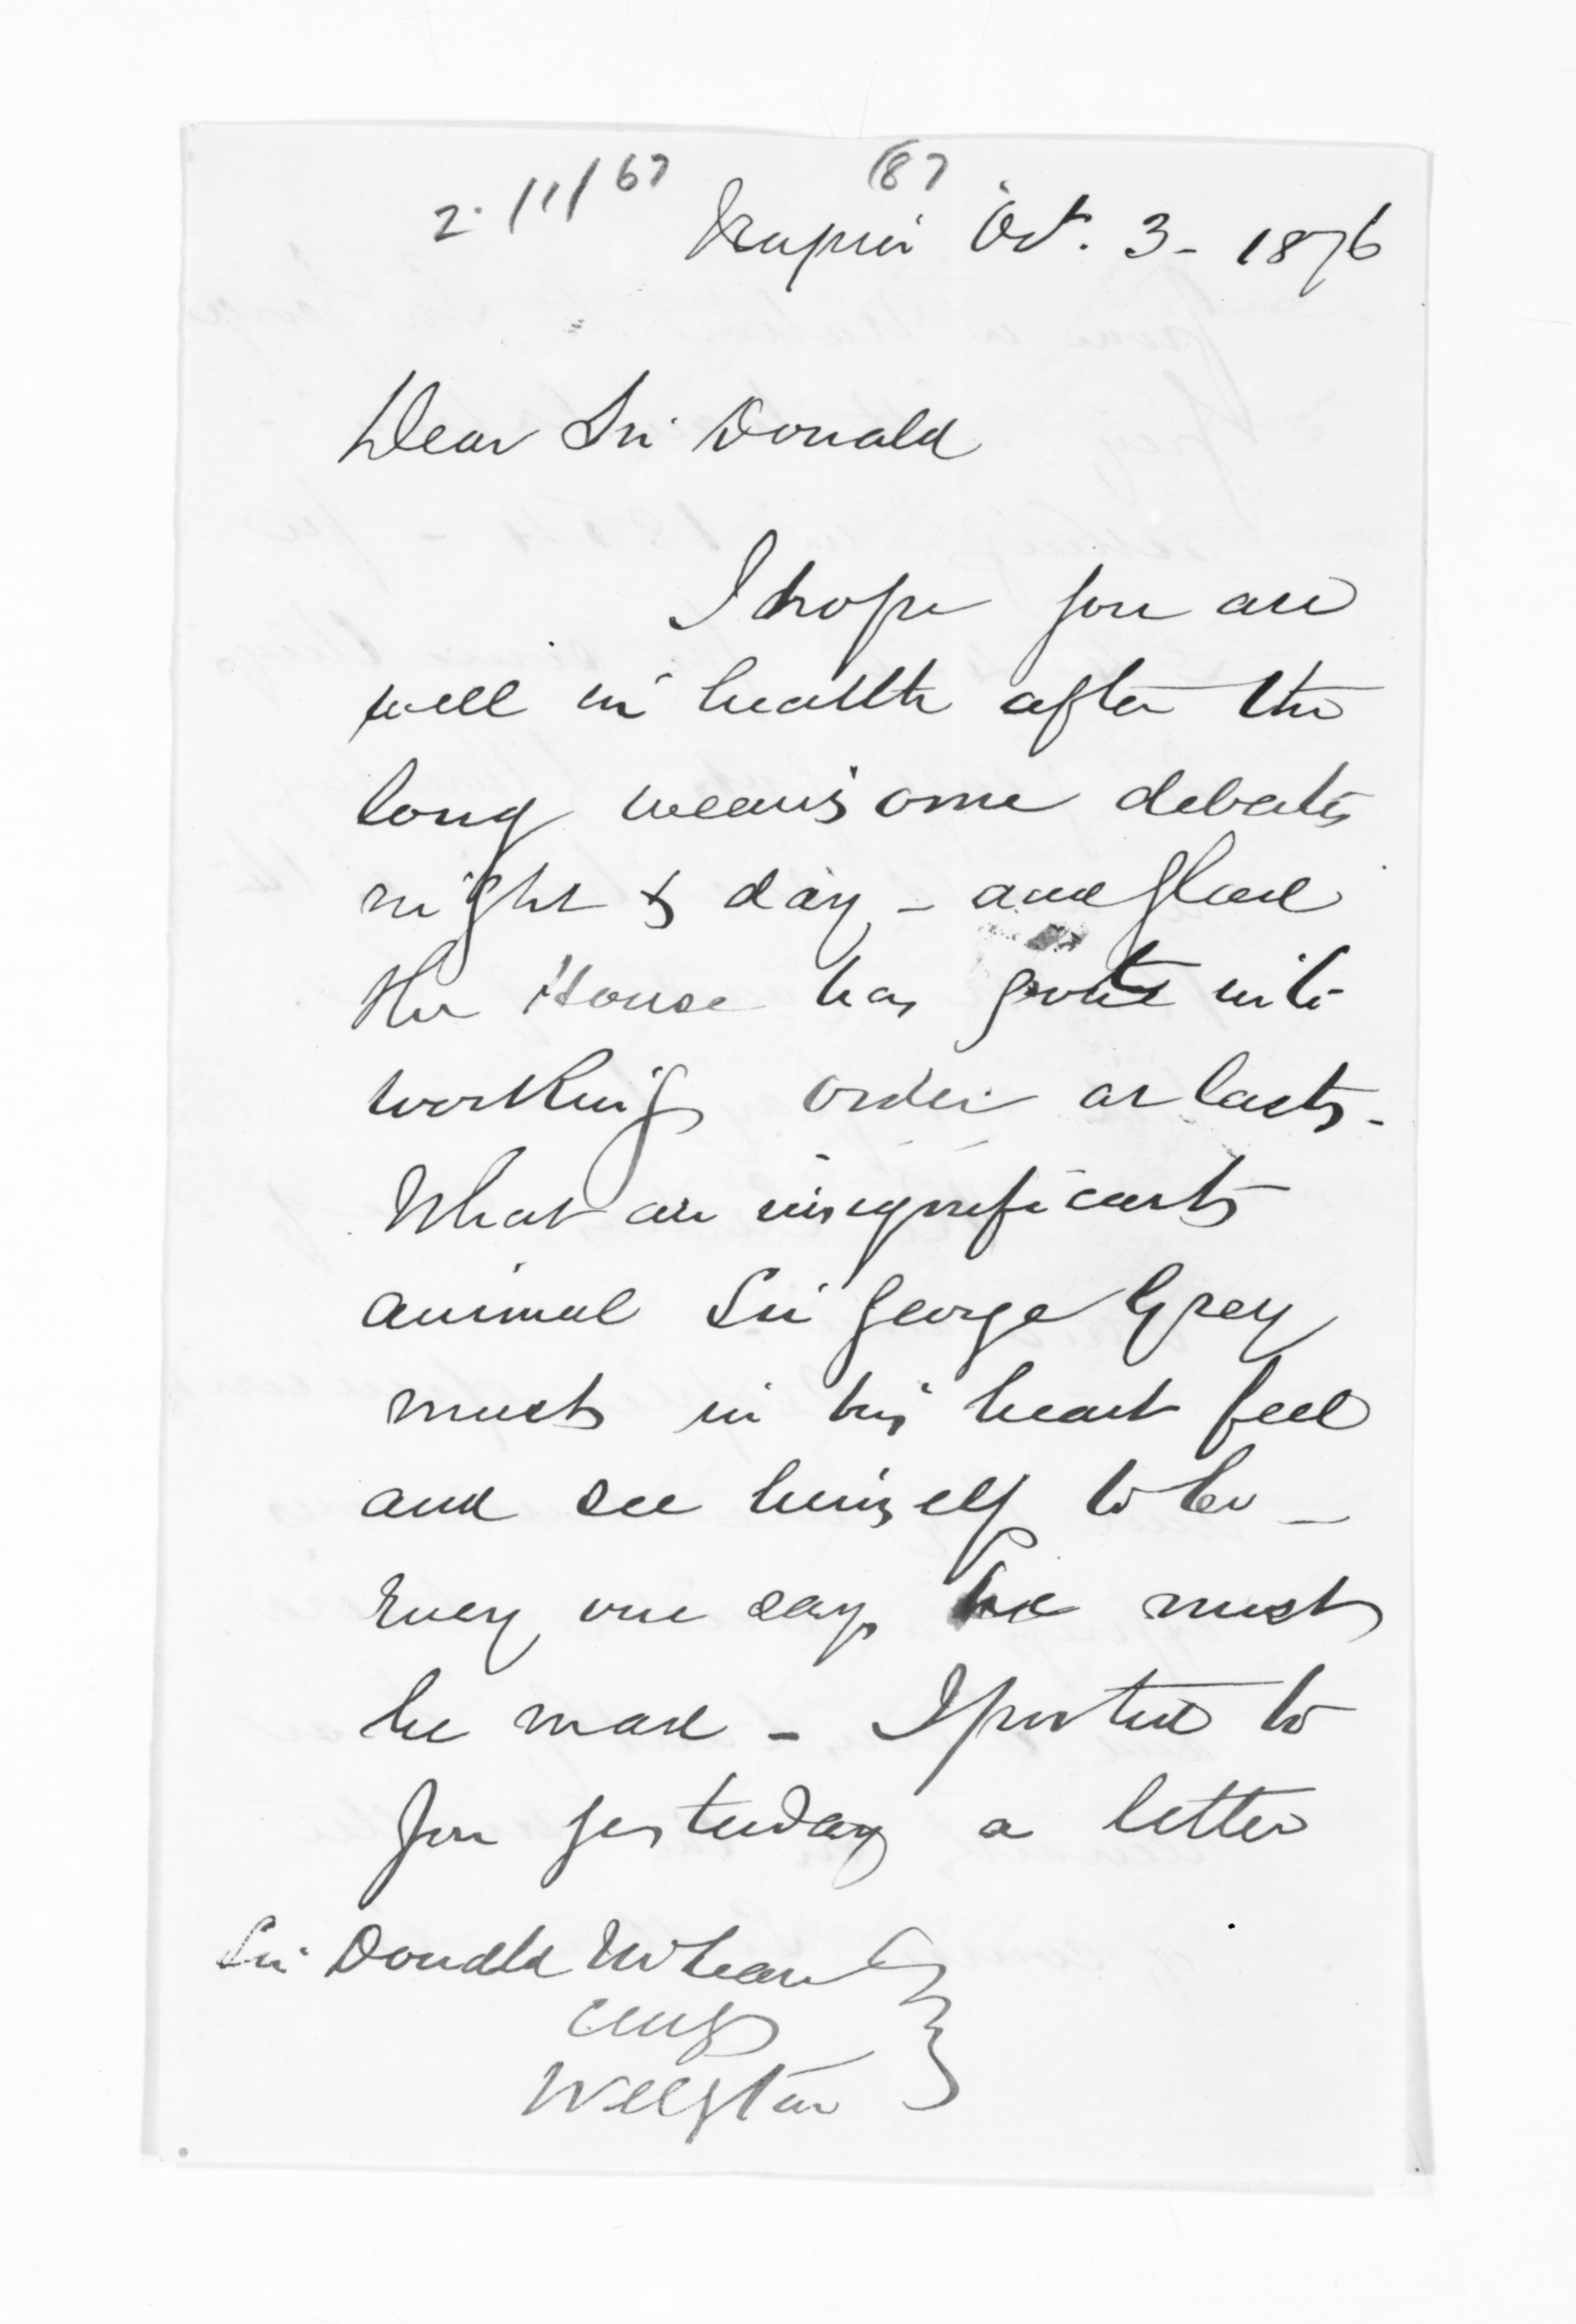 2./11/67 (87
Napier Oct. 3 - 1876
Dear Sir Donald
I hope you are
well in health after the
long wearisome debates
night & day - and glad
the House has got into
working order at last -
What an insignificant
animal Sir George Grey
must in his heart feel
and see himself to be -
Every one says he must
be mad - I posted to
you yesterday a letter
Sir Donald McLean
Wellgton